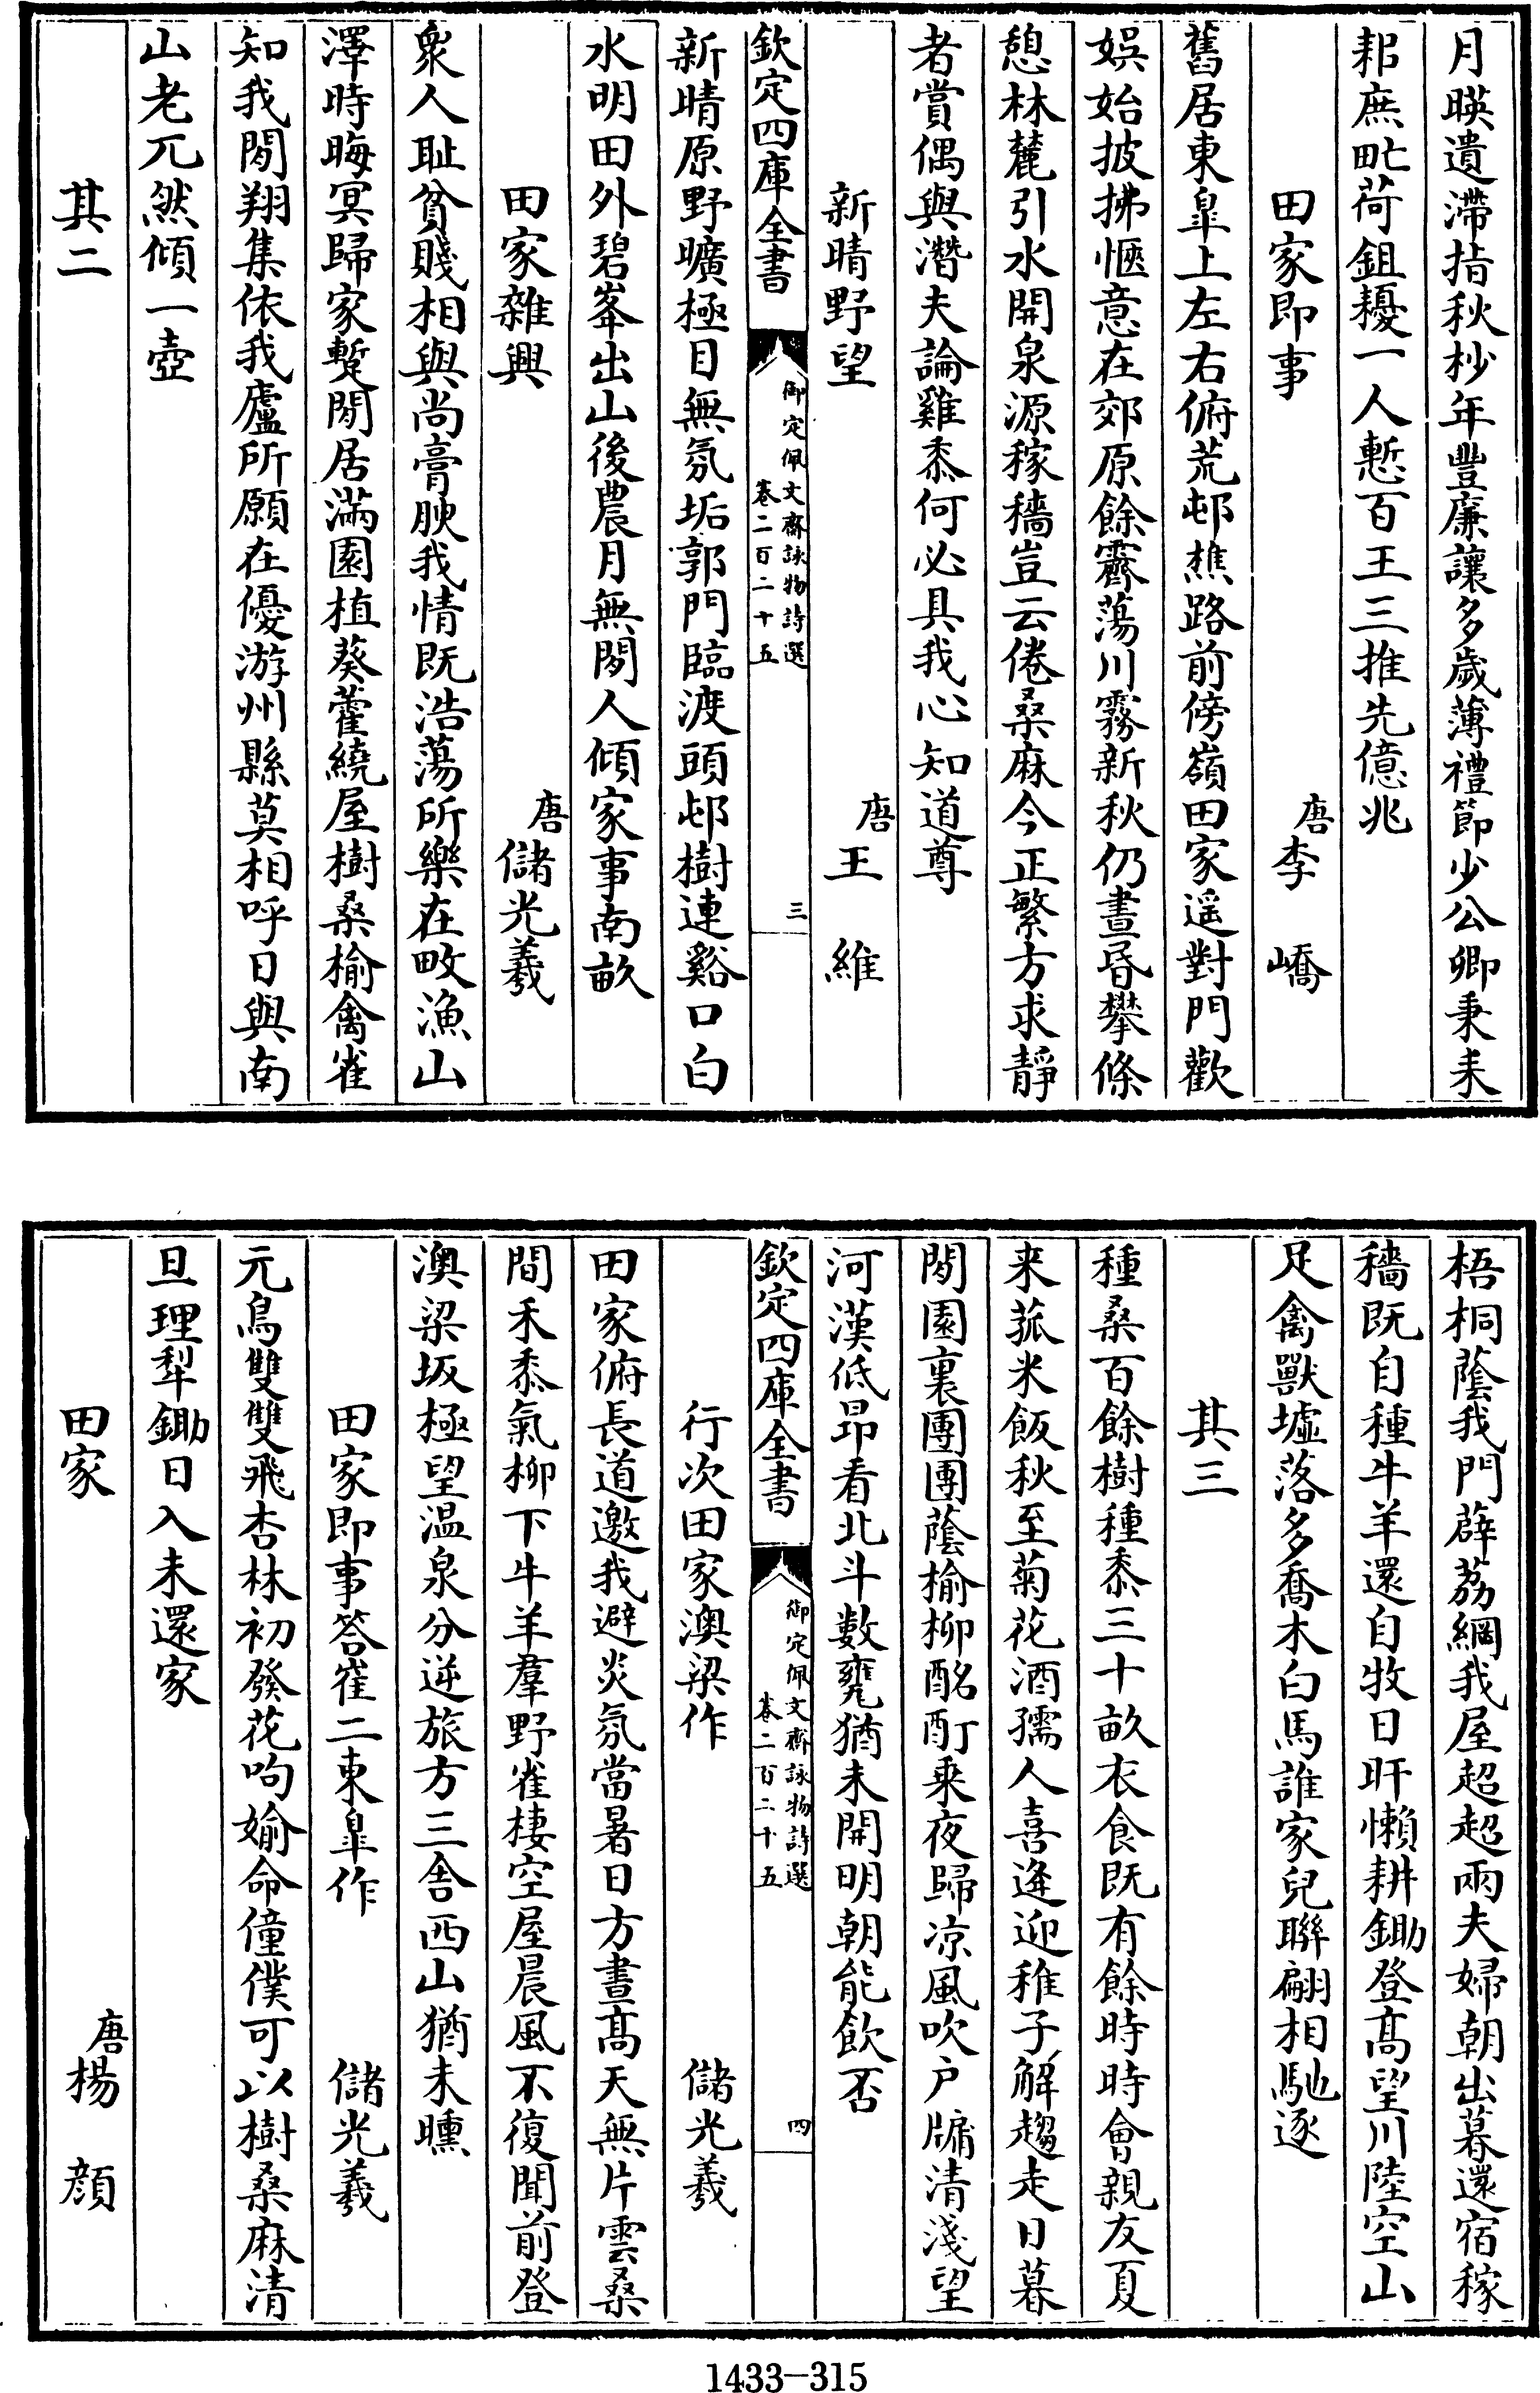 月暎遺滯㨖秋杪年豐㢘讓多歲薄禮節少公卿秉耒
耜庶甿荷鉏耰一人慙百王三推先億兆
田家即事　唐李　嶠
舊居東臯上左右俯荒邨樵路前傍嶺田家遥對門歡
娯始披拂愜意在郊原餘霽蕩川霧新秋仍晝昏攀條
憩林麓引水開泉源稼穡豈云倦桑麻今正繁方求靜
者賞偶與濳夫論雞黍何必具我心知道尊
新晴野望　唐王　維
欽定四庫全書　御定佩文齋詠物詩選　卷二百二十五　三
新晴原野曠極目無氛垢郭門臨渡頭邨樹連谿口白
水明田外碧峯出山後農月無閒人傾家事南畝
田家雜興　唐儲光羲
衆人耻貧賤相與尚膏腴我情既浩蕩所樂在畋漁山
澤時晦冥歸家蹔閒居滿園植葵藿繞屋樹桑榆禽雀
知我閒翔集依我廬所願在優游州縣莫相呼日與南
山老兀然傾一壺
其二
梧桐蔭我門薜荔網我屋超超兩夫婦朝出暮還宿稼
穡既自種牛羊還自牧日旰懶耕鋤登髙望川陸空山
足禽獸墟落多喬木白馬誰家兒聯翩相馳逐
其三
種桑百餘樹種黍三十畝衣食既有餘時時會親友夏
来菰米飯秋至菊花酒孺人喜逢迎稚子解趨走日暮
閒園裏團團蔭榆柳酩酊乗夜歸凉風吹户牖清淺望
河漢低昂看北斗數甕猶未開明朝能飲否
欽定四庫全書　御定佩文齋詠物詩選　卷二百二十五　四
行次田家澳梁作　儲光羲
田家俯長道邀我避炎氛當暑日方晝髙天無片雲桑
間禾黍氣柳下牛羊羣野雀棲空屋晨風不復聞前登
澳梁坂極望温泉分逆旅方三舍西山猶未曛
田家即事答崔二東臯作　儲光羲
元鳥雙雙飛杏林初發花呴媮命僮僕可以樹桑麻清
旦理犂鋤日入未還家
田家　唐楊　顔
1433-315